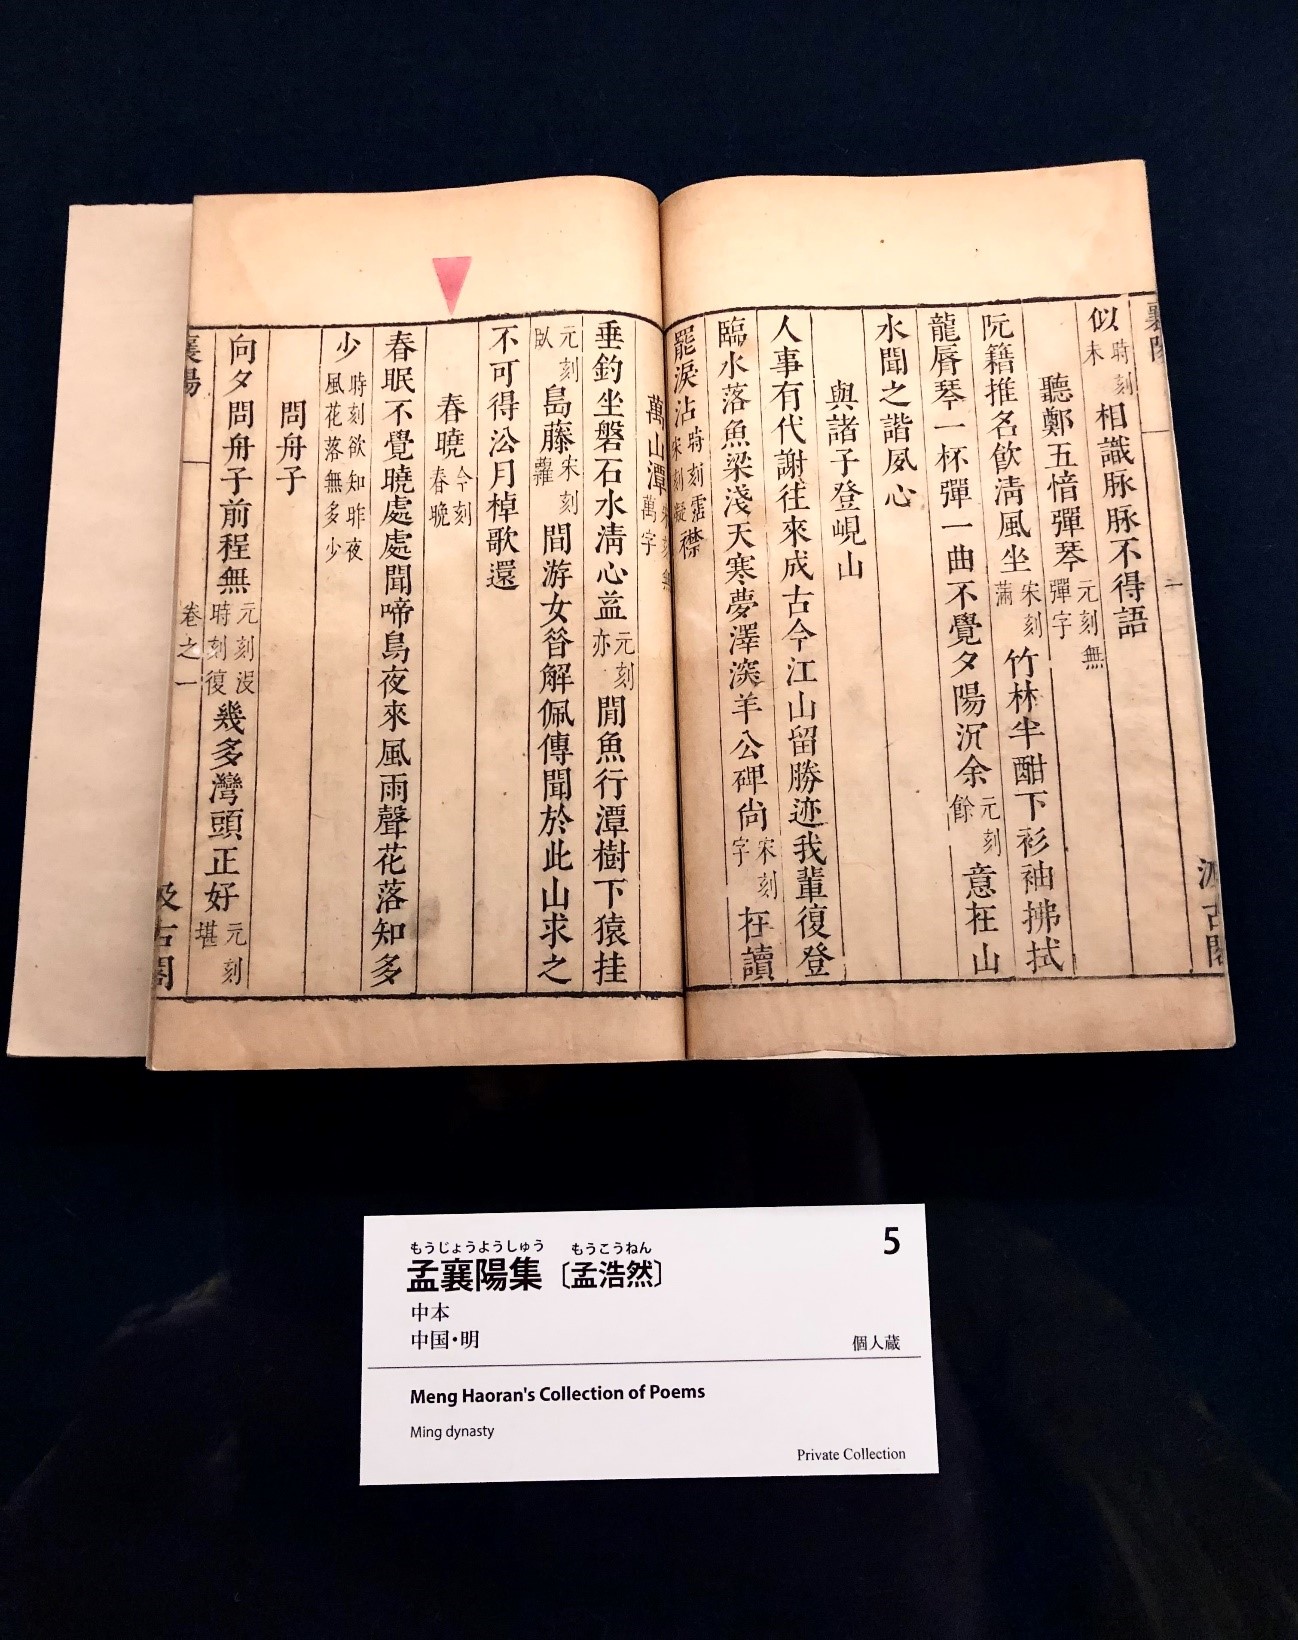 襄陽
二
汲古閣
似時刻未相識脉脉不得語
聽鄭五愔彈琴元刻無彈字
阮籍推名飲淸風坐宋刻滿竹林半酣下衫袖拂拭
龍脣琴一杯彈一曲不覺夕陽沉余元刻餘意在山
水聞之諧夙心
與諸子登峴山
人事有代謝往來成古今江山留勝迹我輩復登
臨水落魚梁淺天寒夢澤深羊公碑尚宋刻字在讀
罷淚沾時刻霑宋刻凝襟
萬山潭宋刻無萬字
垂釣坐磐石水淸心益元刻亦閒魚行潭樹下猿挂
元刻臥島藤宋刻蘿間游女昝解佩傳聞於此山求之
不可得㳂月棹歌還
春曉今刻春晚
春眠不覺曉處處聞啼鳥夜來風雨聲花落知多
少時刻欲知昨夜風花落無多少
問舟子
向夕問舟子前程無元刻没時刻復幾多灣頭正好元刻堪
襄陽
卷之一
汲古閣
もうじょうようしゅう もうこうねん
孟襄陽集〔孟浩然〕
5
中本
中国・明
個人蔵
Meng Haoran's Collection of Poems
Ming dynasty
Private Collection